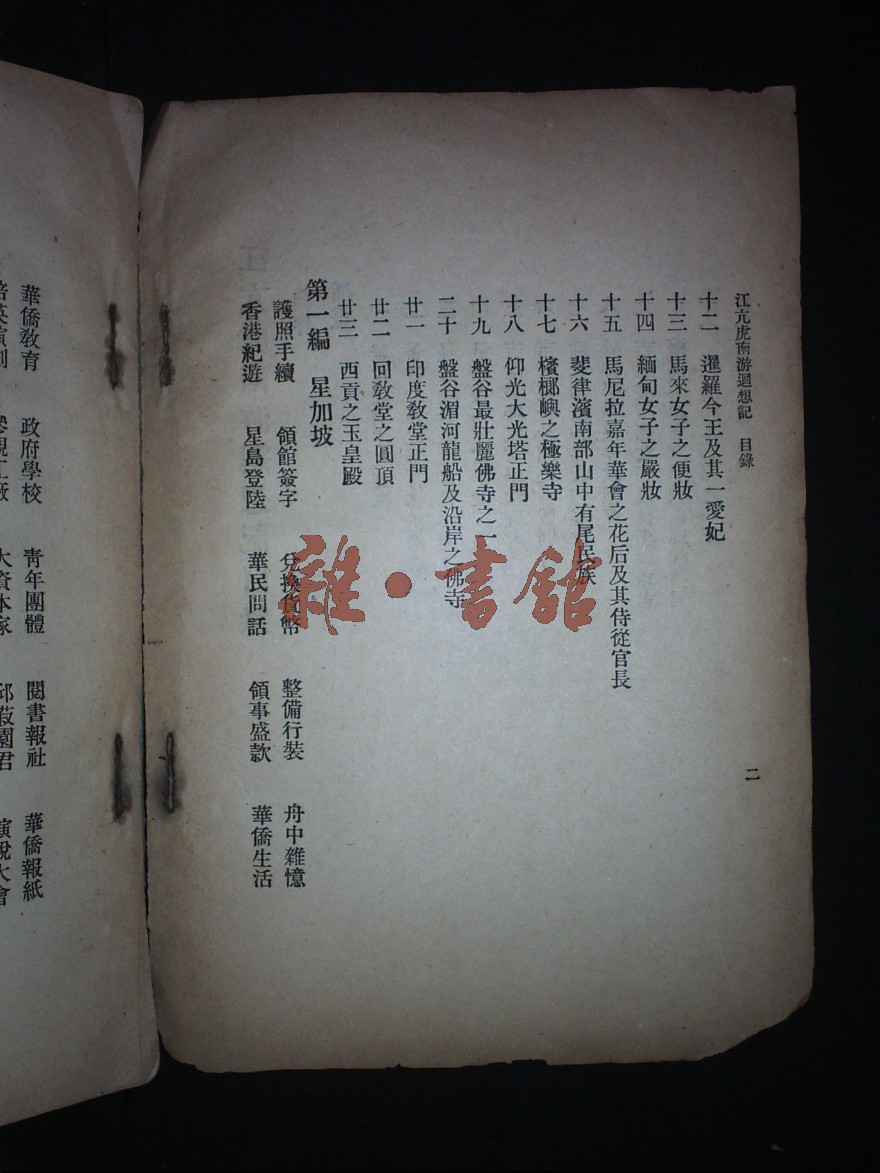 江亢虎南游迴想記　目錄
二
十二　暹羅今王及其一愛妃
十三　馬來女子之便妝
十四　緬甸女子之嚴妝
十五　馬尼拉嘉年華會之花后及其侍從官長
十六　斐律濱南部山中有尾民族
十七　檳榔嶼之極樂寺
十八　仰光大光塔正門
十九　盤谷最壯麗佛寺之一
二十　盤谷湄河龍船及沿岸之佛寺
廿一　印度教堂正門
廿二　回教堂之圓頂
廿三　西貢之玉皇殿
第一編　星加坡
護照手續　領館簽字　兌換貨幣　整備行裝　舟中雜憶
香港紀遊　星島登陸　華民問話　領事盛款　華僑生活
華僑教育　政府學校　青年團體　閱書報社　華僑報紙
培英演劇　參觀工廠　大資本家　邱菽園君　演說大會
雜·書館